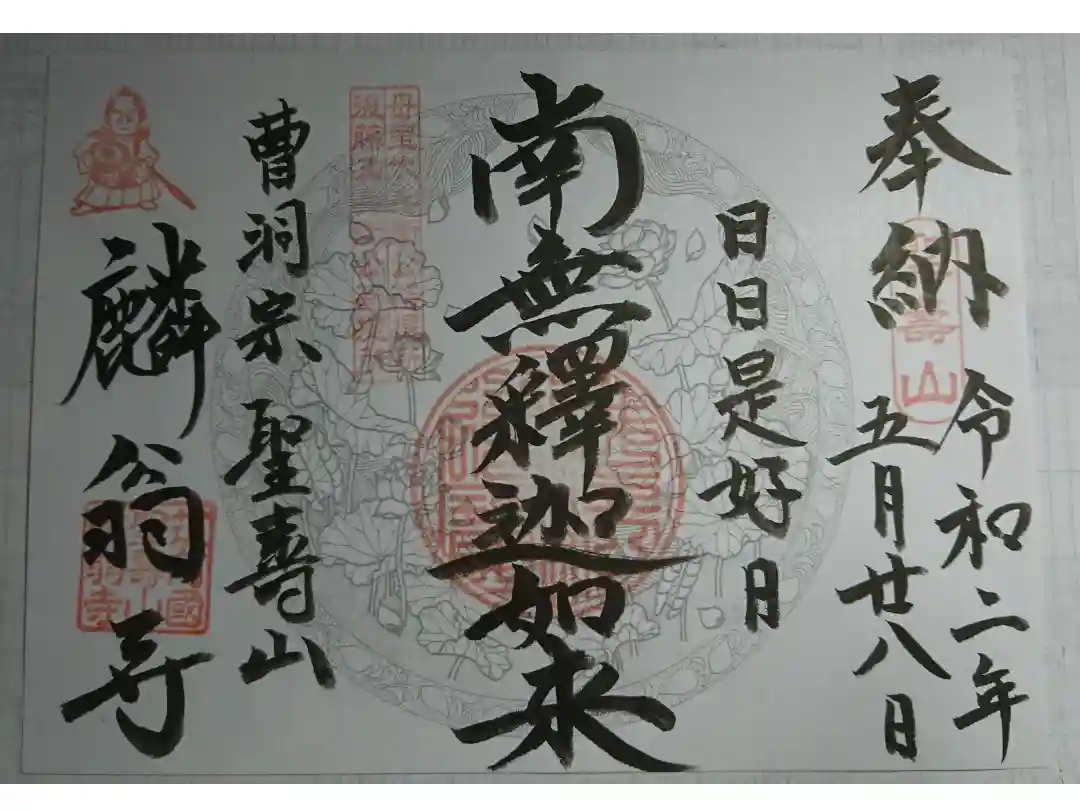 奉納
令和二年
五月廿八日
日日是好日
南無釋迦如来
曹洞宗 聖壽山
麟翁寺